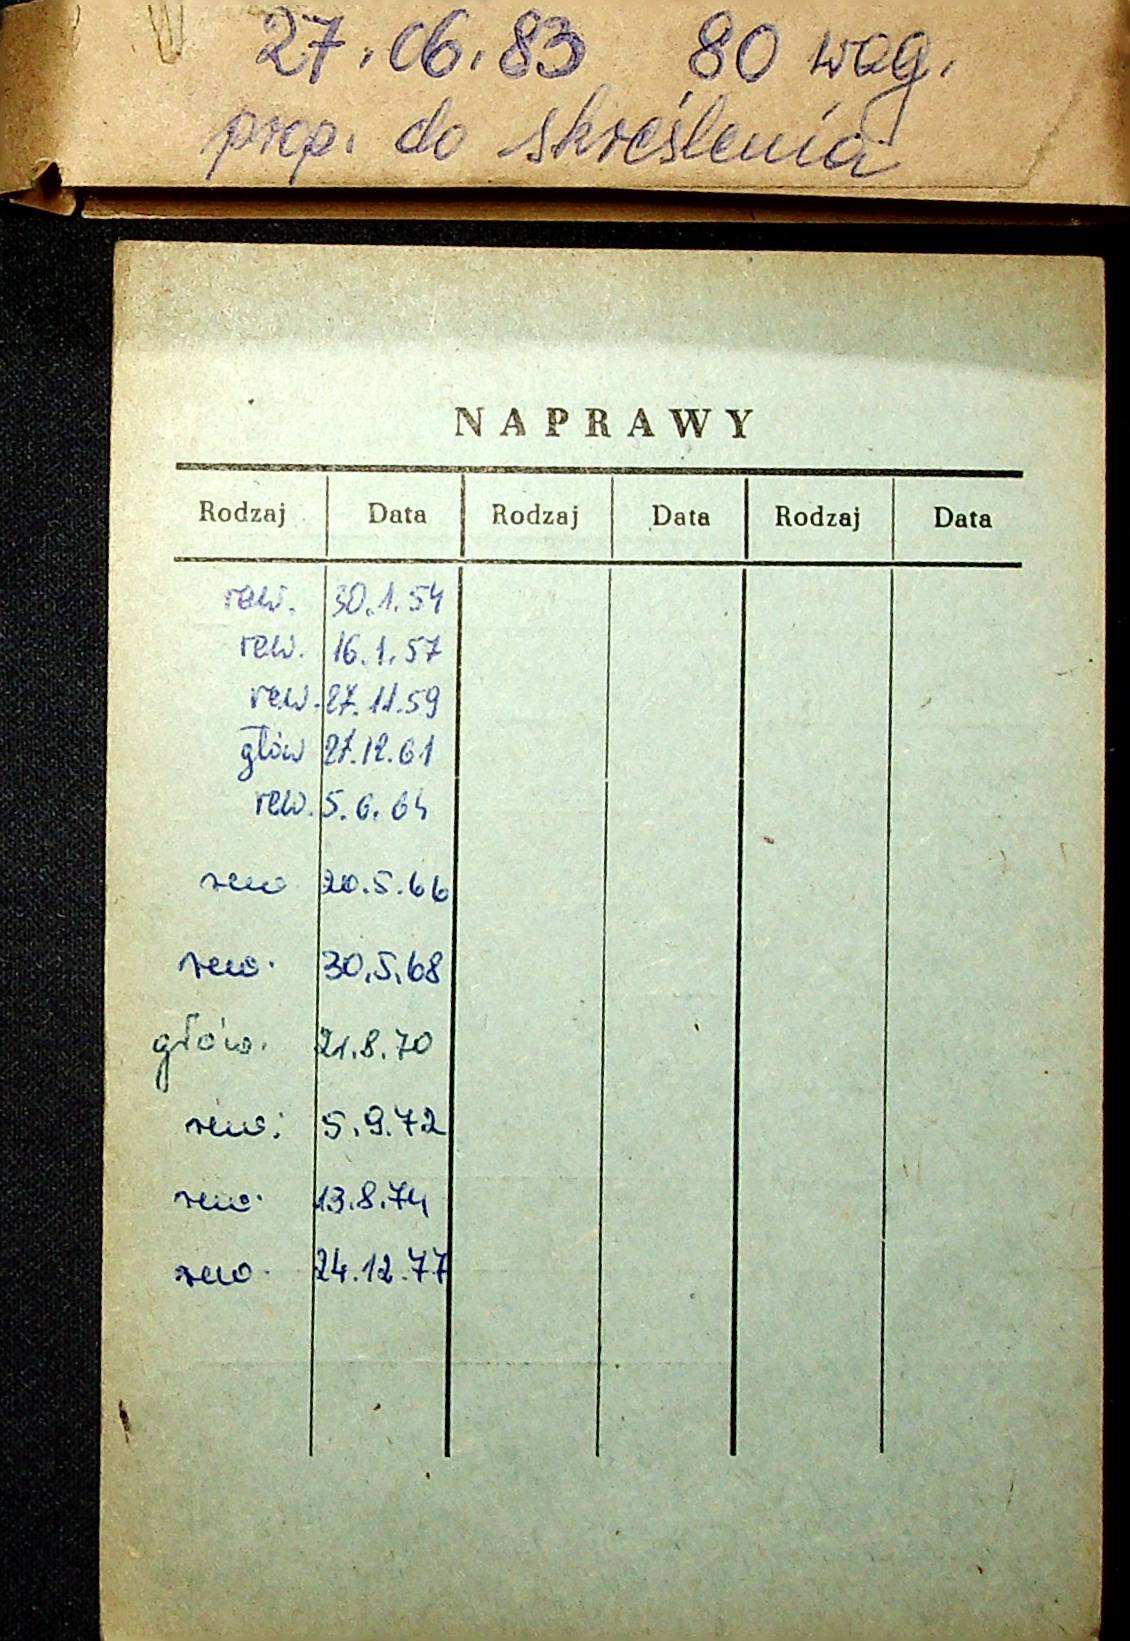 27.06.83 80 wag.
prop. do skreślenia
NAPRAWY
Rodzaj Data Rodzaj Data Rodzaj Data
rew. 30.1.54
rew. 16.1.57
rew. 27.11.59
głów 27.12.61
rew. 5.6.64
rew 20.5.66
rew. 30.5.68
głów. 21.8.70
rew. 5.9.72
rew. 13.8.74
rew. 24.12.77